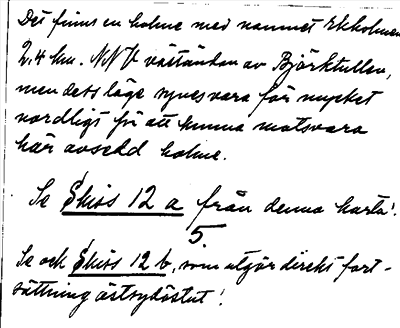 Det finns en holme med namnet Ekholmen
2,4 km. NNV väständan av Björktullen,
men dets läge synes vara för mycket
nordligt för att kunna motsvara
här avsedd holme.
Se Skiss 12 a från denna karta!
5.
Se ock Skiss 12 b, som utgör direkt fort-
sättning östsydöstut!